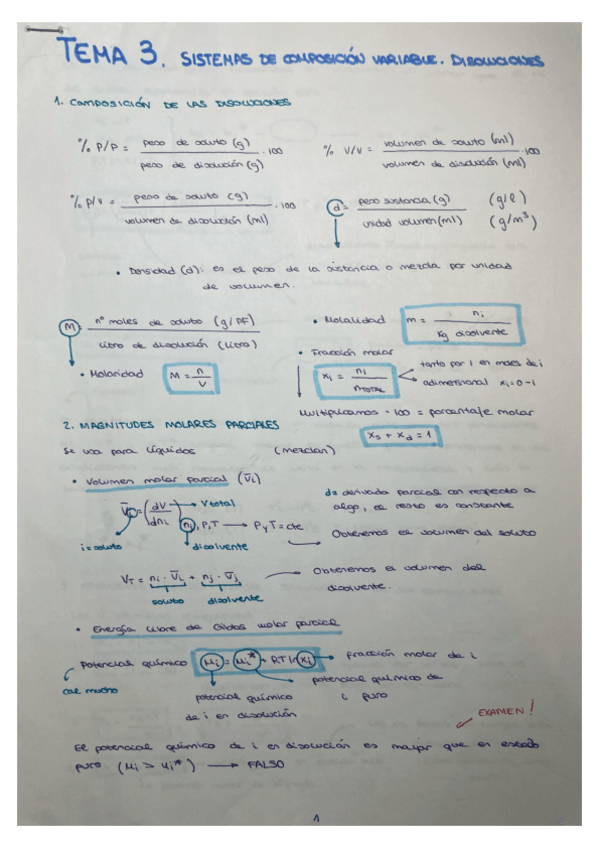 TEMA 3. SISTEMAS DE COMPOSICIÓN VARIABLE. DISOLUCIONES
1. COMPOSICIÓN DE LAS DISOLUCIONES
% P/P = peso de soluto (g) / peso de disolución (g) · 100
% V/V = volumen de soluto (ml) / volumen de disolución (ml) · 100
% P/V = peso de soluto (g) / volumen de disolución (ml) · 100
d = peso sustancia (g) / unidad volumen (ml) (g/l) (g/m³)
• Densidad (d): es el peso de la sustancia o mezcla por unidad
de volumen.
M = nº moles de soluto (g/PF) / Litro de disolución (Litro)
• Molaridad M = n / V
• Molalidad m = ni / Kg disolvente
• Fracción molar
xi = ni / nTOTAL
tanto por 1 en moles de i
adimensional xi = 0-1
Multiplicamos · 100 = porcentaje molar
xs + xd = 1
2. MAGNITUDES MOLARES PARCIALES
Se usa para líquidos (mezclan)
• Volumen molar parcial (V̄i)
V̄i = (dV / dni) nj, P, T → P y T = cte
V total
i = soluto
disolvente
d = derivada parcial con respecto a
algo, el resto es constante
Obtenemos el volumen del soluto
VT = ni · V̄i + nj · V̄j
soluto disolvente
Obtenemos el volumen del
disolvente.
• Energía libre de Gibbs molar parcial
Potencial químico μi = μi* + RT ln xi
fracción molar de i
cae mucho
potencial químico
de i en disolución
potencial químico de
i puro
EXAMEN!
El potencial químico de i en disolución es mayor que en estado
puro (μi > μi*) → FALSO
1